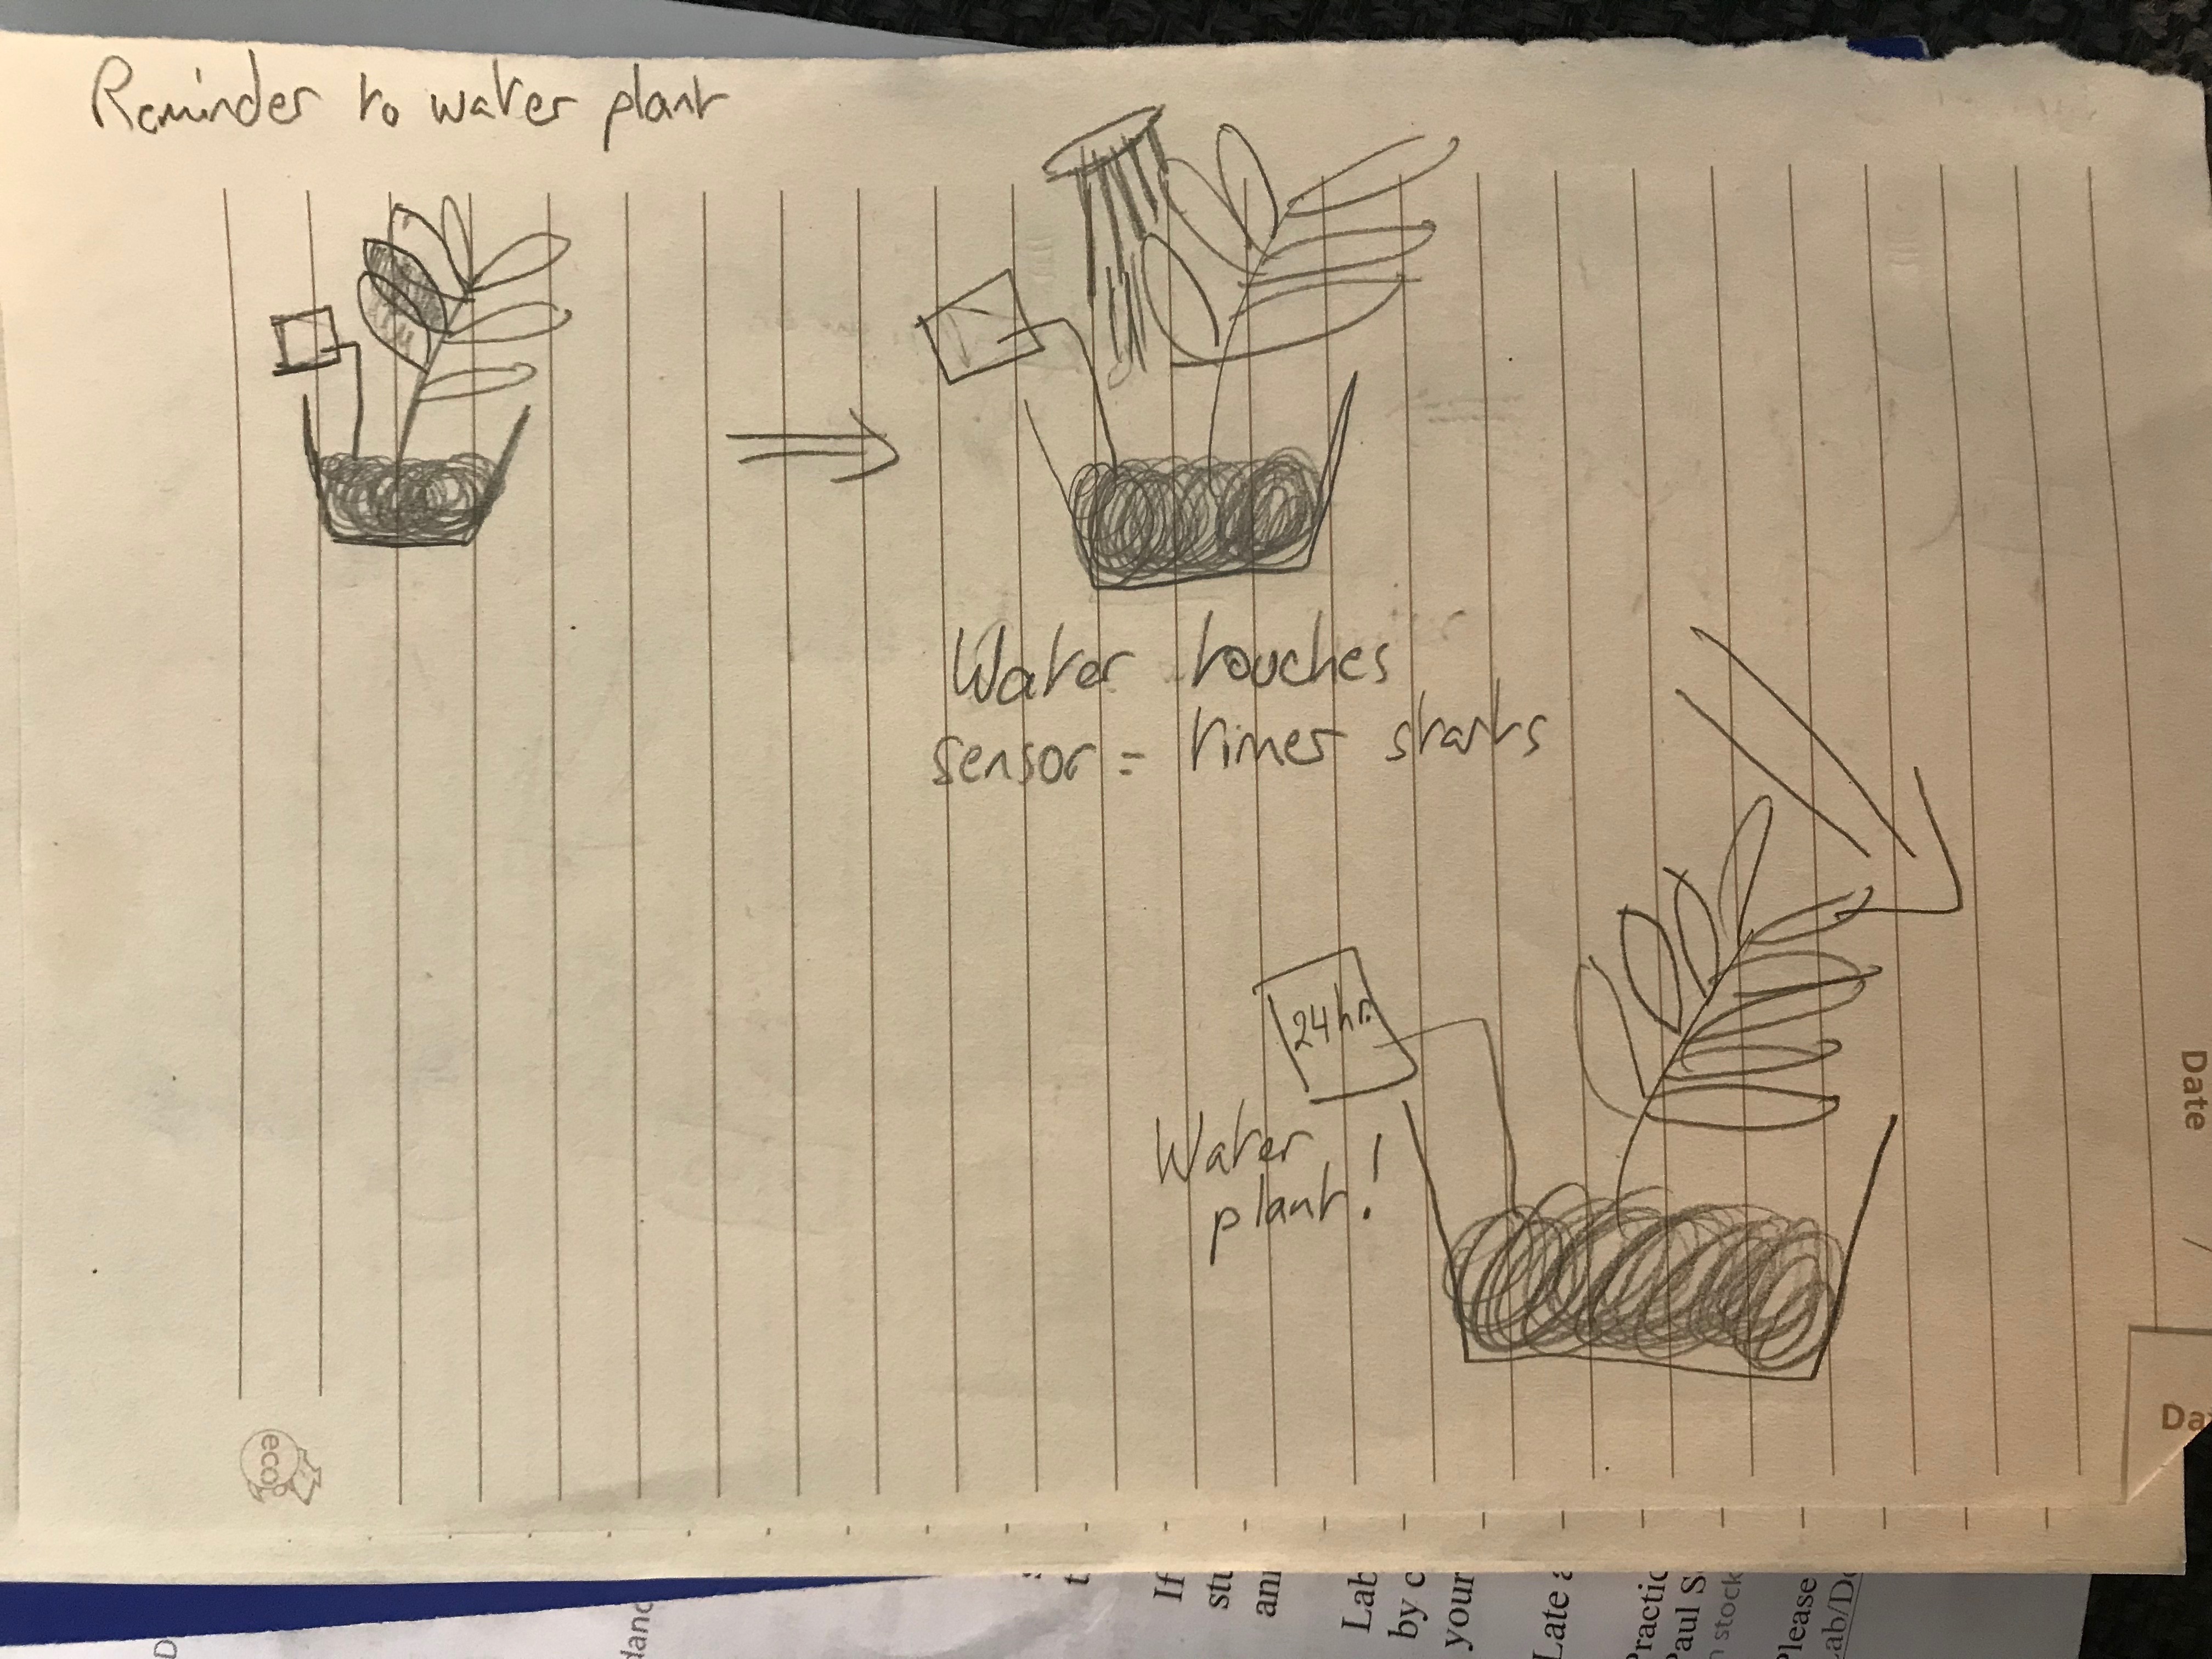 Reminder to water plant
Water touches
sensor = timer starts
24hr.
Water
plant!
Date
/
Da
eco
If
stu
an
Lab
by c
your
Late a
Practic
Paul S
n stock
Please
Lab/De
D
danc